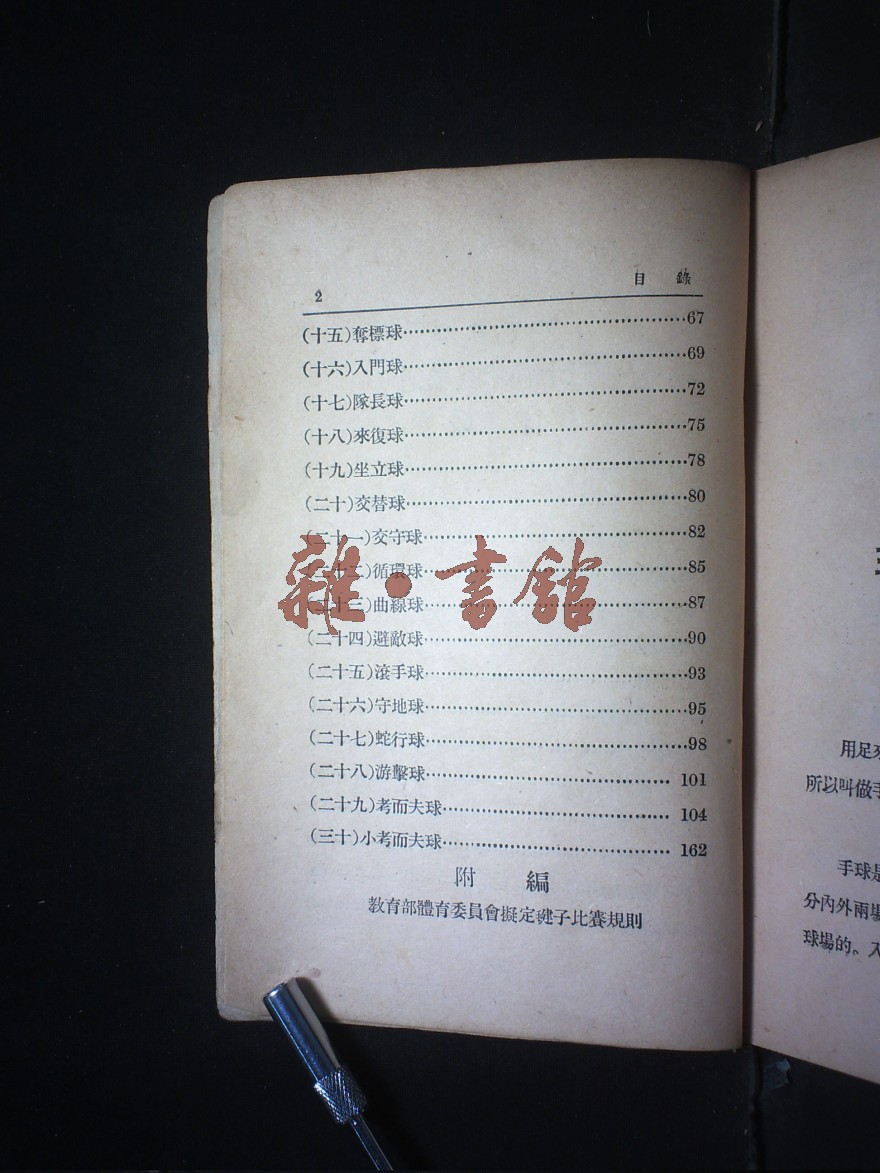 2 目錄
(十五)奪標球……67
(十六)入門球……69
(十七)隊長球……72
(十八)來復球……75
(十九)坐立球……78
(二十)交替球……80
(二十一)交守球……82
(二十二)循環球……85
(二十三)曲線球……87
(二十四)避敵球……90
(二十五)滾手球……93
(二十六)守地球……95
(二十七)蛇行球……98
(二十八)游擊球……101
(二十九)考而夫球……104
(三十)小考而夫球……162
附編
教育部體育委員會擬定毽子比賽規則
雜·書館
用足
所以叫做手
手球是
分內外兩場
球場的。入